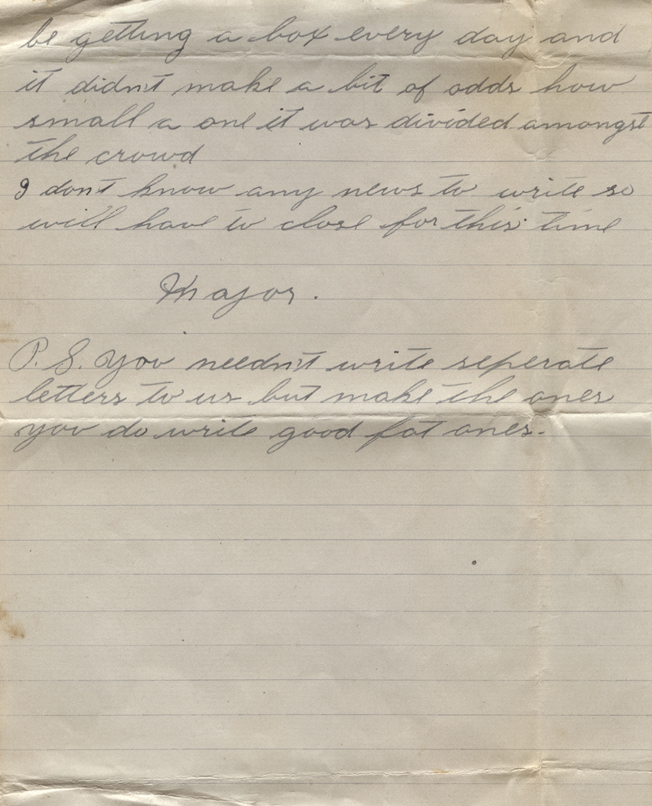 be getting a box every day and
it didn't make a bit of odds how
small a one it was divided amongst
the crowd
I don't know any news to write so
will have to close for this time
Major.
P.S. You needn't write seperate
letters to us but make the ones
you do write good fat ones.